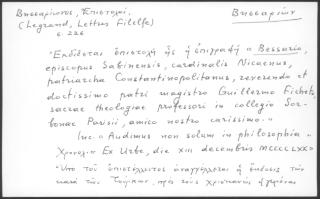 Βησσαρίωνος, Ἐπιστολαί.
Βησσαρίων
(Legrand, Lettres Filelfe)
σ. 226
"Ἐκδίδεται ἐπιστολὴ ἧς ἡ ἐπιγραφὴ « Bessario,
episcopus Sabinensis, cardinalis Nicaenus,
patriarcha Constantinopolitanus, reverendo et
doctissimo patri magistro Guillermo Ficheto,
sacrae theologiae professori in collegio Sor-
bonae Parisii, amico nostro carissimo."
Inc. « Audimus non solum in philosophia »
Χρονολογ. Ex Urbe, die XIII decembris MCCCCLXX»
"Ὑπὸ τοῦ ἐπιστέλλοντος ἀναγγέλλεται ἡ
κατὰ τῶν Τούρκων, πρὸς τοὺς Χριστιανοὺς ἡγεμόνας